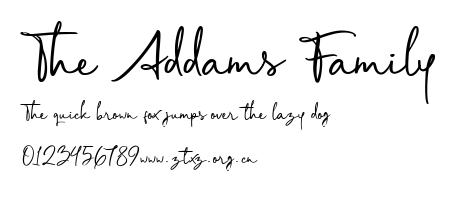 The Addams Family
The quick brown fox jumps over the lazy dog
0123456789 www.ztxz.org.cn